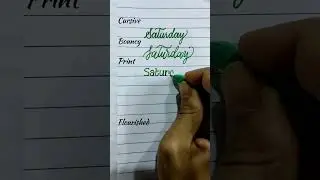 Cursive
Saturday
Bouncy
Saturday
Print
Saturc
Flourished